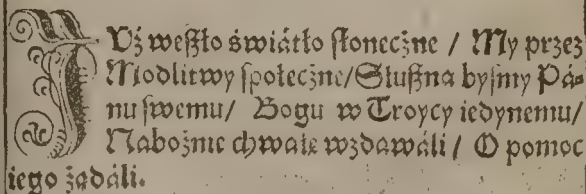 IVż weszło świátło słoneczne / My przez
Modlitwy społeczne/Słuszna byśmy Pá-
nu swemu/ Bogu w Troycy iedynemu/
Nabożnie chwałę wzdawáli / O pomoc
iego żądáli.